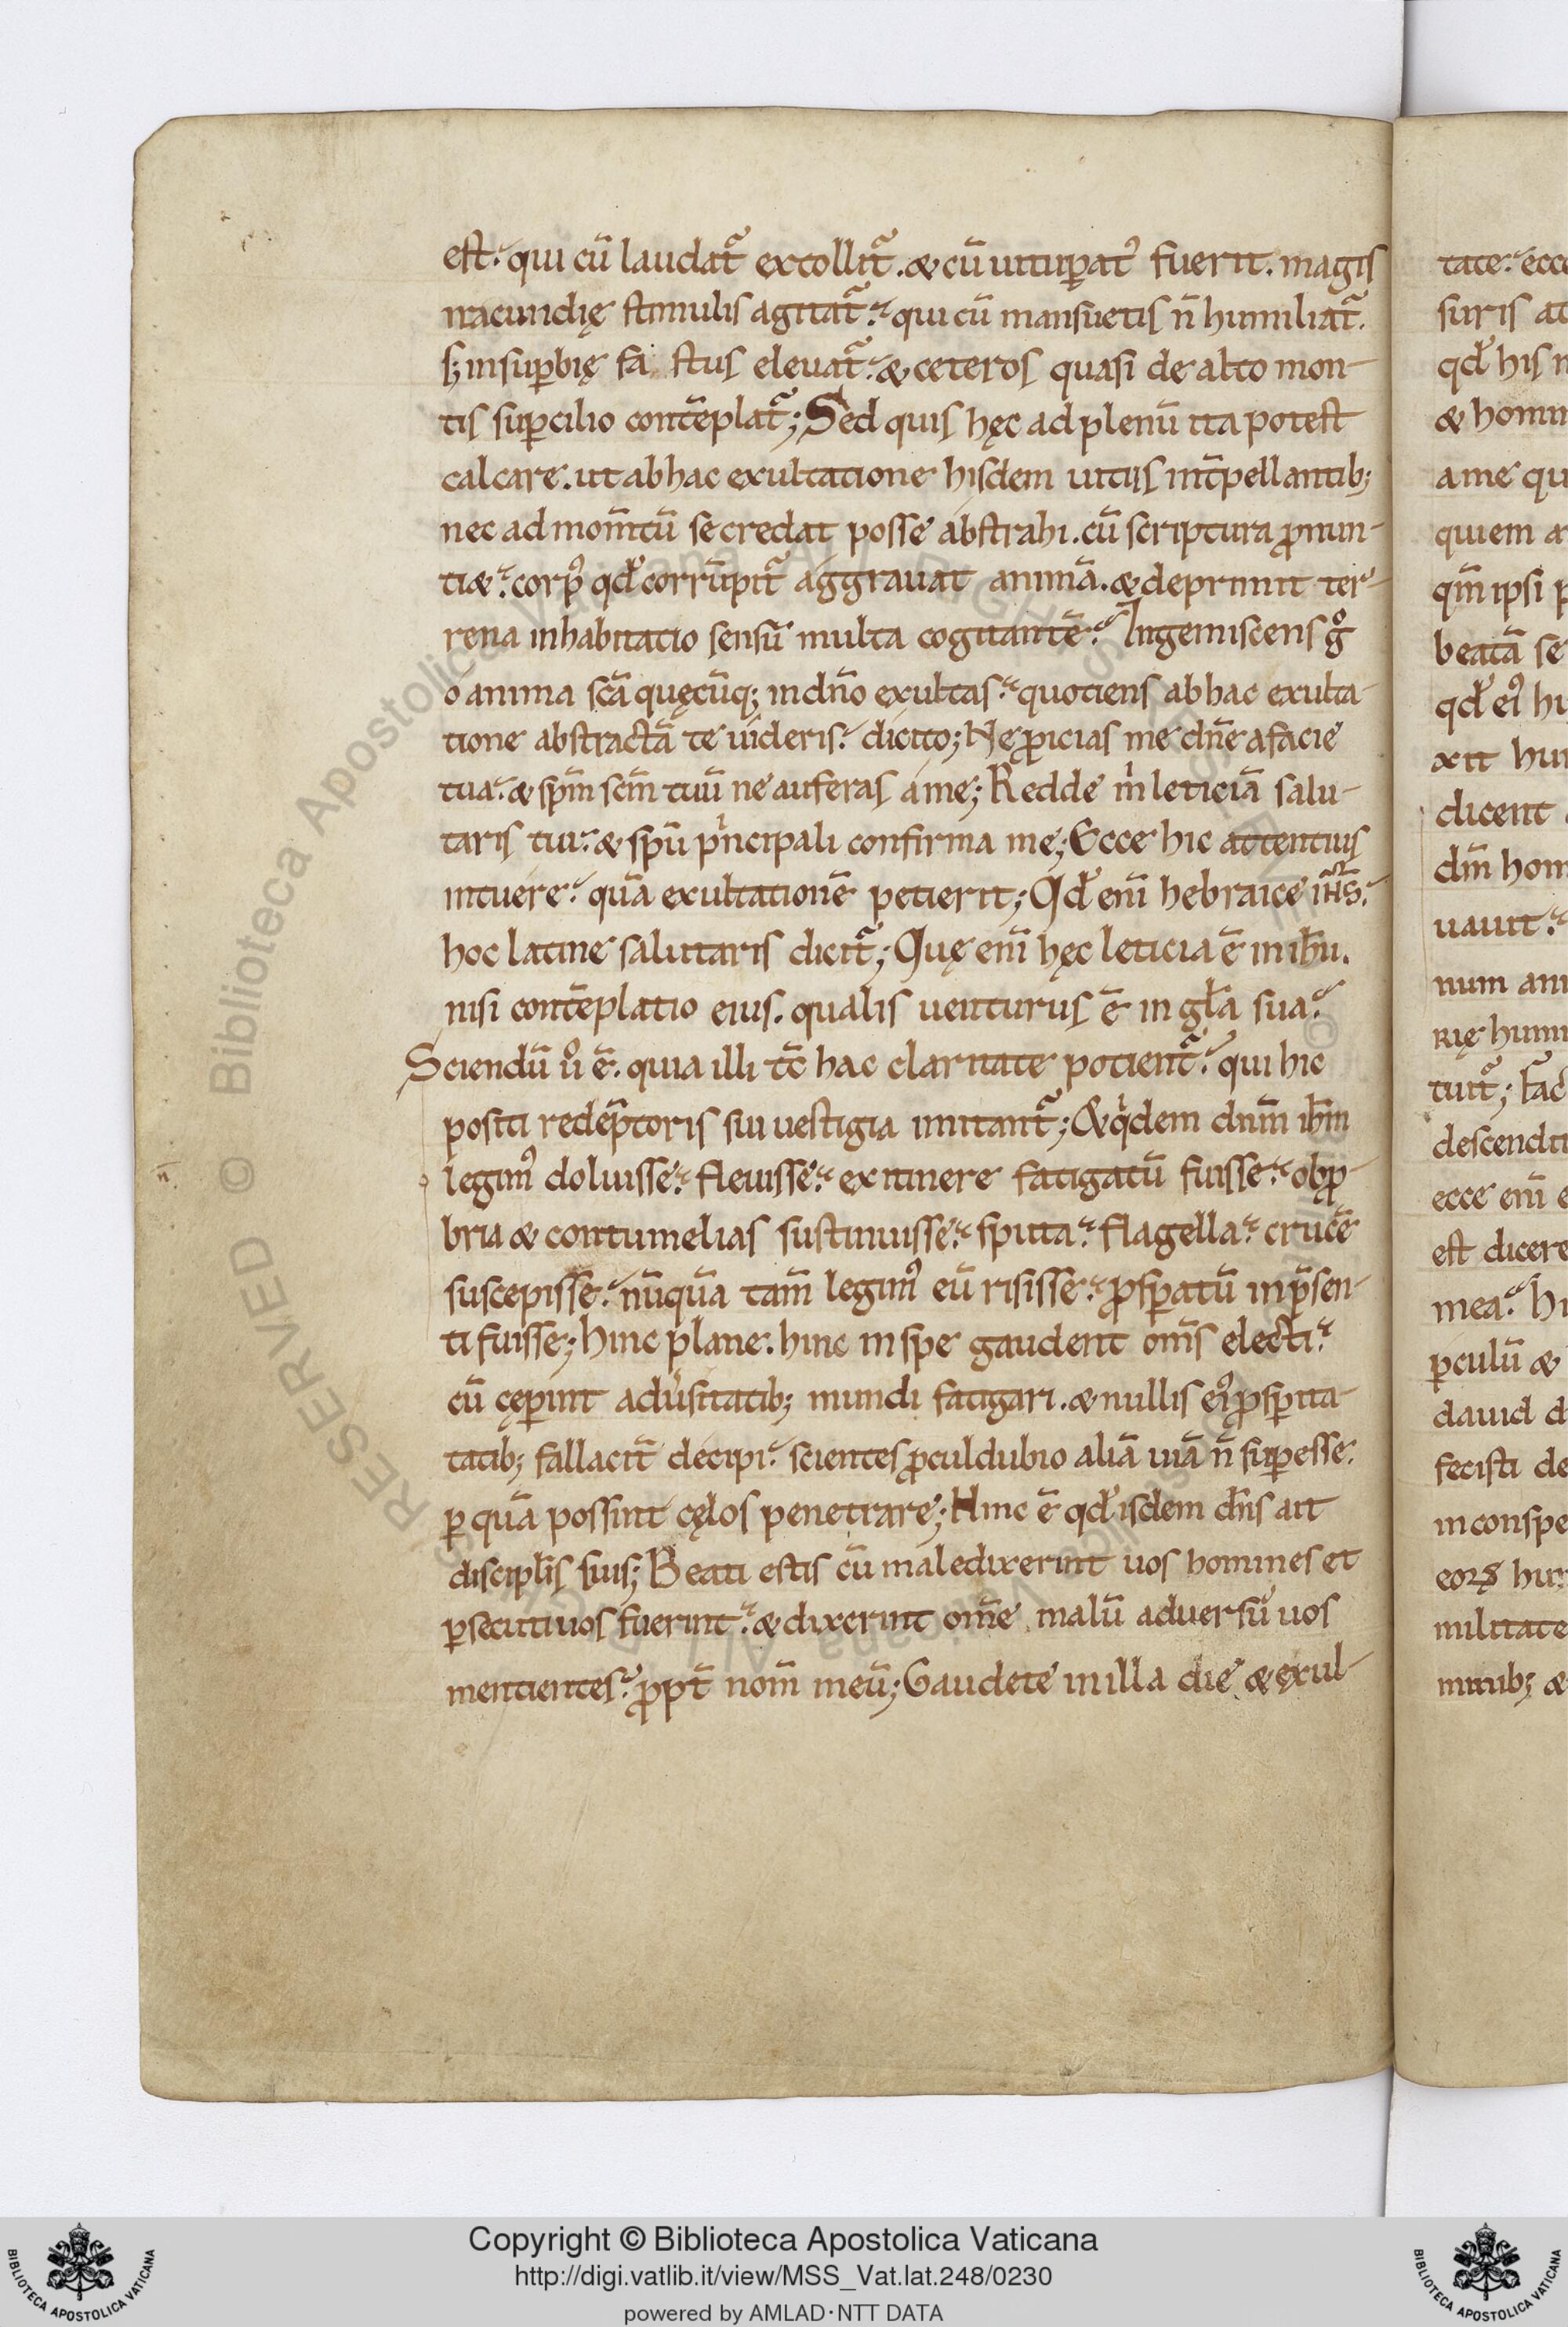 est. qui cū laudat̄ extollit̄. & cū uituꝑatꝰ fuerit. magis
iracundię stimulis agitat̄. qui cū mansuetis n̄ humiliat̄.
s; in suꝑbię fastus eleuat̄. & ceteros quasi de alto mon-
tis suꝑcilio contēplat̄; Sed quis hęc ad plenū ita potest
calcare. ut ab hac exultatione hisdem uitiis int̄pellantib;
nec ad momt̄ū se credat posse abstrahi. cū scriptura ꝓnun-
ti&. corpꝰ qd̄ corrūpit̄ aggrauat animā. & deprimit ter-
rena inhabitatio sensū multa cogitantē. Ingemiscens gͦ
o anima sc̄a quęcūq; in dn̄o exultas. quotiens ab hac exulta-
tione abstractā te uideris. dicito; Ne ꝓicias me dn̄e a facie
tua. & sp̄m sc̄m tuū ne auferas a me; Redde m̄ leticiā salu-
taris tui. & sp̄u pͥncipali confirma me; Ecce hic attentius
intuere. quā exultationē petierit; Qd̄ enī hebraice iħs̄.
hoc latine salutaris dicit̄; Quę enī hęc leticia ē in iħu.
nisi contēplatio eius. qualis uenturus ē in gl̄a sua.
Sciendū ūͦ ē. quia illi tc̄ hac claritate potient̄. qui hic
positi redēp̄toris sui uestigia imitant̄; Et qͥdem dnm̄ iħm
legimꝰ doluisse. fleuisse. ex itinere fatigatū fuisse. obꝓ-
bria & contumelias sustinuisse. sputa. flagella. crucē
suscepisse. nūquā tam̄ legimꝰ eū risisse. ꝓsꝑatū in p̄sen-
ti fuisse; Hinc plane. hinc in spe gaudent om̄s electi.
cū cęꝑint adūsitatib; mundi fatigari. & nullis eiꝰ ꝓsꝑita-
tatib; fallacit̄ decipi. scientes ꝓculdubio aliā uiā n̄ suꝑesse.
ꝑ quā possint cęlos penetrare; Hinc ē qd̄ isdem dn̄s ait
discipl̄is suis; Beati estis cū maledixerint uos homines et
ꝑsecuti uos fuerint. & dixerint om̄e malū aduersū uos
mentientes. ꝓpt̄ nom̄ meū; Gaudete in illa die & exul-
tate. ecce
suris
qd̄ his
& homin
a me
quiem
qm̄ ipsi
beatā se
qd̄ eiꝰ
xit
dicent
dm̄ hom
uauit.
num
rię hum
tuit̄;
descendit
ecce enī
est dicere
mea.
ꝑculū &
dauid
fecisti de
in conspe
eoꝝ
militate
minib; &
RESERVED © Biblioteca Apostolica Vaticana
Copyright © Biblioteca Apostolica Vaticana
http://digi.vatlib.it/view/MSS_Vat.lat.248/0230
powered by AMLAD·NTT DATA
BIBLIOTECA APOSTOLICA VATICANA
BIBLIOTECA APOSTOLICA VATICANA